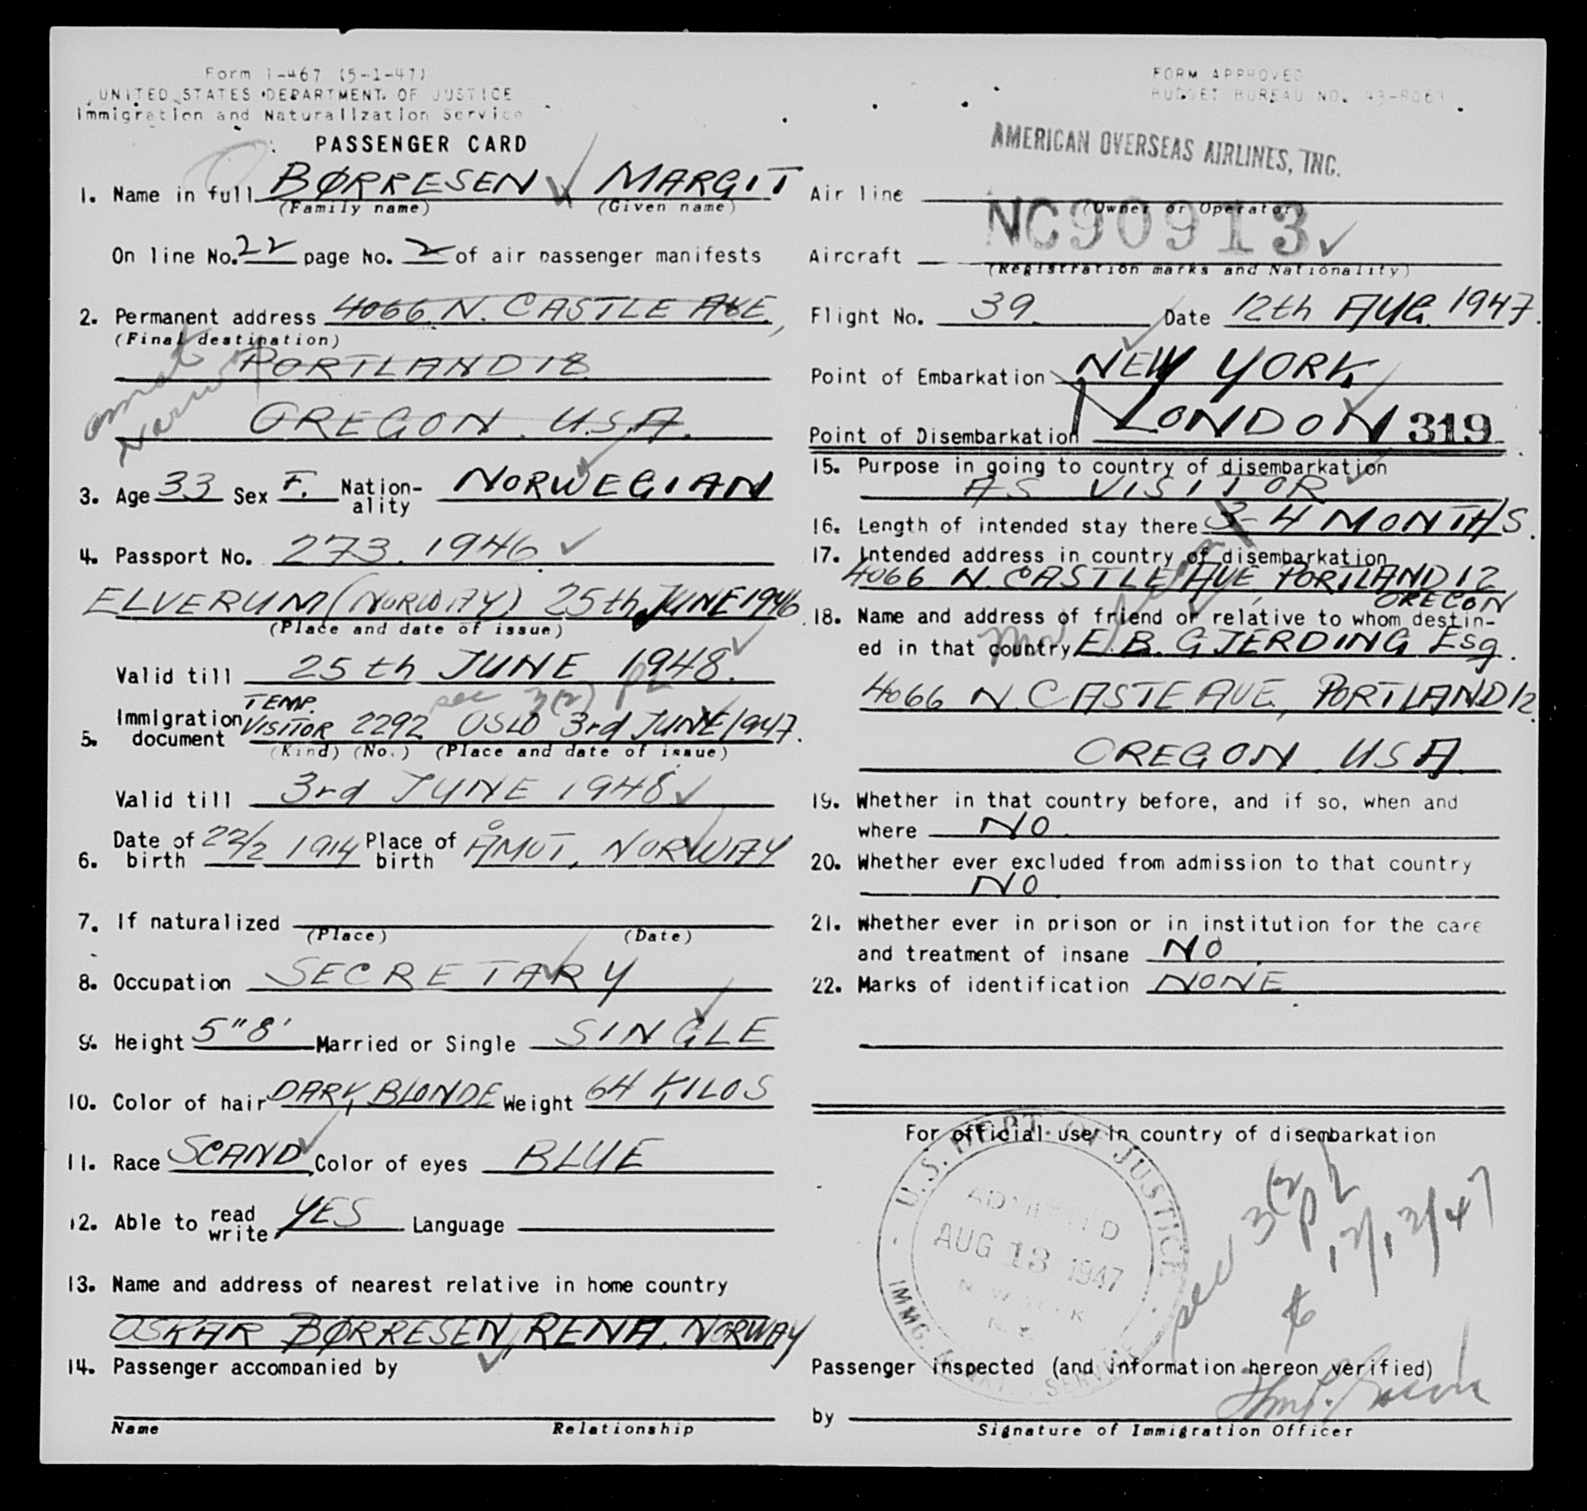 Form I-467 (5-1-47)
UNITED STATES DEPARTMENT OF JUSTICE
Immigration and Naturalization Service
PASSENGER CARD
1. Name in full BØRRESEN MARGIT
(Family name) (Given name)
On line No. 22 page No. 2 of air passenger manifests
2. Permanent address 4066 N. CASTLE AVE,
(Final destination)
PORTLAND 12
OREGON U.S.A.
3. Age 33 Sex F. Nation-ality NORWEGIAN
4. Passport No. 273. 1946
ELVERUM (NORWAY) 25th JUNE 1946
(Place and date of issue)
Valid till 25th JUNE 1948.
sec 3(2)
5. Immigration document TEMP. VISITOR 2292 OSLO 3rd JUNE 1947.
(Kind) (No.) (Place and date of issue)
Valid till 3rd JUNE 1948
6. Date of birth 22/2 1914 Place of birth ÅMOT, NORWAY
7. If naturalized
(Place) (Date)
8. Occupation SECRETARY
9. Height 5"8' Married or Single SINGLE
10. Color of hair DARK BLONDE Weight 64 KILOS
11. Race SCAND Color of eyes BLUE
12. Able to read write YES Language
13. Name and address of nearest relative in home country
OSKAR BØRRESEN, RENA, NORWAY
14. Passenger accompanied by
Name Relationship
FORM APPROVED
BUDGET BUREAU NO. 43-R063
AMERICAN OVERSEAS AIRLINES, INC.
Air line
(Owner or Operator)
Aircraft NC90913
(Registration marks and Nationality)
Flight No. 39 Date 12th AUG. 1947.
Point of Embarkation NEW YORK
Point of Disembarkation LONDON 319
15. Purpose in going to country of disembarkation
AS VISITOR
16. Length of intended stay there 3-4 MONTHS.
17. Intended address in country of disembarkation
4066 N. CASTLE AVE, PORTLAND 12
OREGON
18. Name and address of friend or relative to whom destin-
ed in that country E.B. GJERDING Esq.
4066 N CASTE AVE., PORTLAND 12
OREGON USA
19. Whether in that country before, and if so, when and
where NO
20. Whether ever excluded from admission to that country
NO
21. Whether ever in prison or in institution for the care
and treatment of insane NO
22. Marks of identification NONE
For official use in country of disembarkation
U.S. DEPT. OF JUSTICE
ADMITTED
AUG 13 1947
NEW YORK
N.Y.
IMMG. & NAT. SERVICE
sec 3(2)
Passenger inspected (and information hereon verified)
by
Signature of Immigration Officer